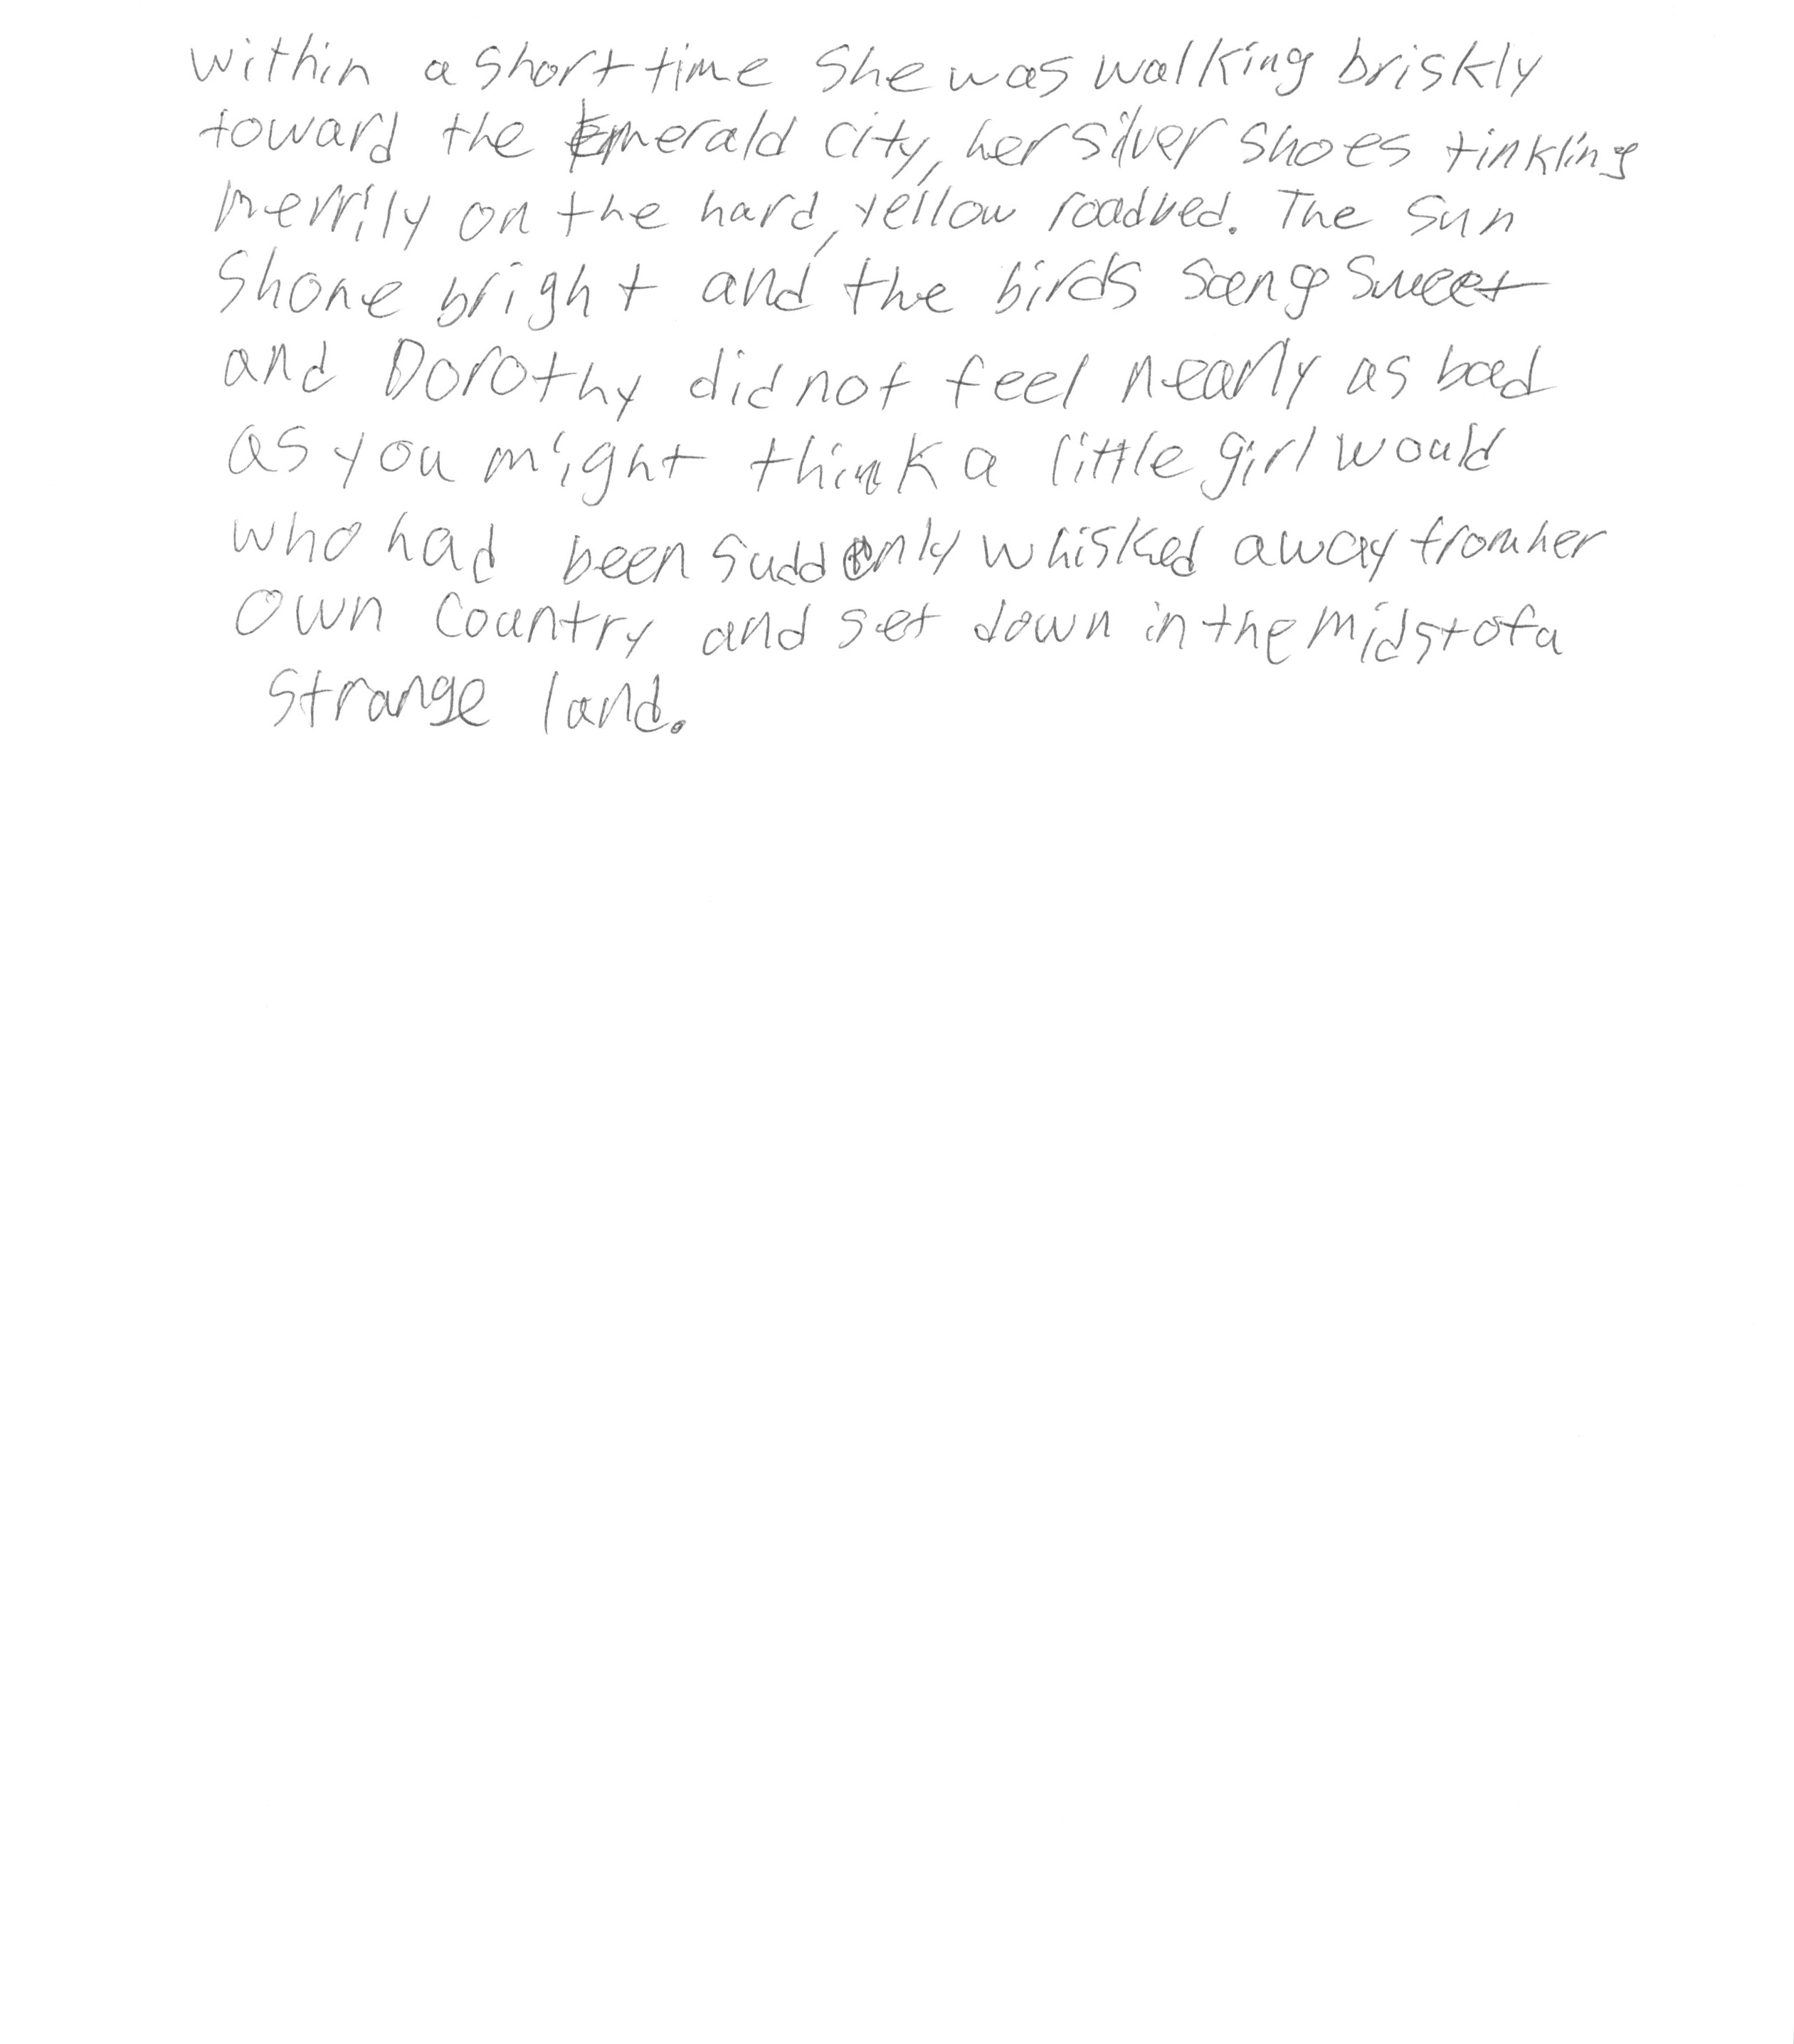 Within a short time she was walking briskly
toward the Emerald City, her silver shoes tinkling
merrily on the hard, yellow roadbed. The sun
shone bright and the birds sang sweet
and Dorothy did not feel nearly as bad
as you might think a little girl would
who had been suddenly whisked away from her
own country and set down in the midst of a
strange land.